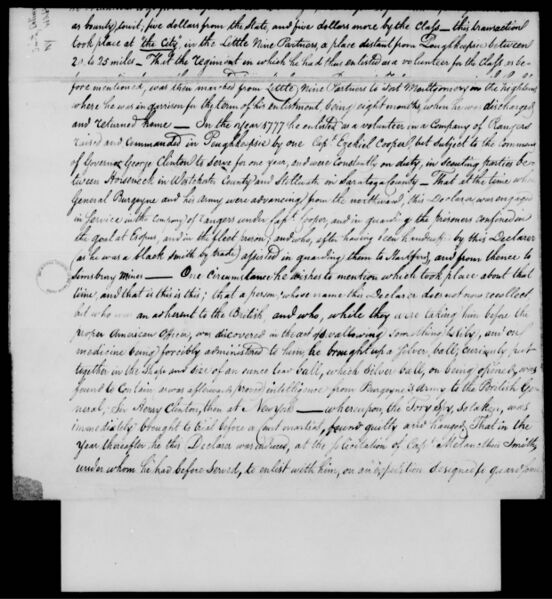 as bounty, point, five dollars from the State, and five dollars more by the class — this transaction
took place at "the City" in the Little Nine Partners, a place distant from Poughkeepsie between
20 to 25 miles — That the regiment in which he had thus enlisted as a volunteer for the Class as be-
fore mentioned, was then marched from Little Nine Partners to Fort Montgomery on the highlands
where he was in garrison for the term of his enlistment, being eight months, when he was discharged,
and returned home — In the year 1777 he enlisted as a volunteer in a Company of Rangers
raised and commanded in Poughkeepsie by one Capt. Ezekiel Cooper, but subject to the command
of Governor George Clinton to serve for one year, and were constantly on duty, in scouting parties be-
tween Horseneck in County and Stillwater in Saratoga County — That at the time when
General Burgoyne and his army were advancing from the northward, this Declarer was engaged
in service in the company of rangers under Capt. Cooper, and in guarding the prisoners confined in
the goal at Esopus, and in the fleet prison, and who, after having been handcuft by this Declarer
(as he was a black smith by trade) assisted in guarding them to Hartford, and from thence to
Simsbury Mines — One Circumstance he wishes to mention which took place about that
time, and that is this is this; that a person, whose name this Declarer does not now recollect
but who was an adherent to the British, and who, while they were taking him before the
proper American Officer, was discovered in the act of swallowing something slily, and on
medicine being forcibly administered to him, he brought up a Silver ball, curiously put
together in the shape and size of an ounce lead ball, which Silver ball, on being opened, was
found to Contain as was afterwards proved intelligence from Burgoyne's Army to the British Ge-
neral, Sir Henry Clinton, then at New York — whereupon the Tory Spy, so taken, was
immediately brought to trial before a Court martial, found guilty and hanged, That in the
Year thereafter he this Declarer was induced, at the solicitation of Capt. Melancthon Smith,
under whom he had before served, to enlist with him, on an expedition designed to guard some